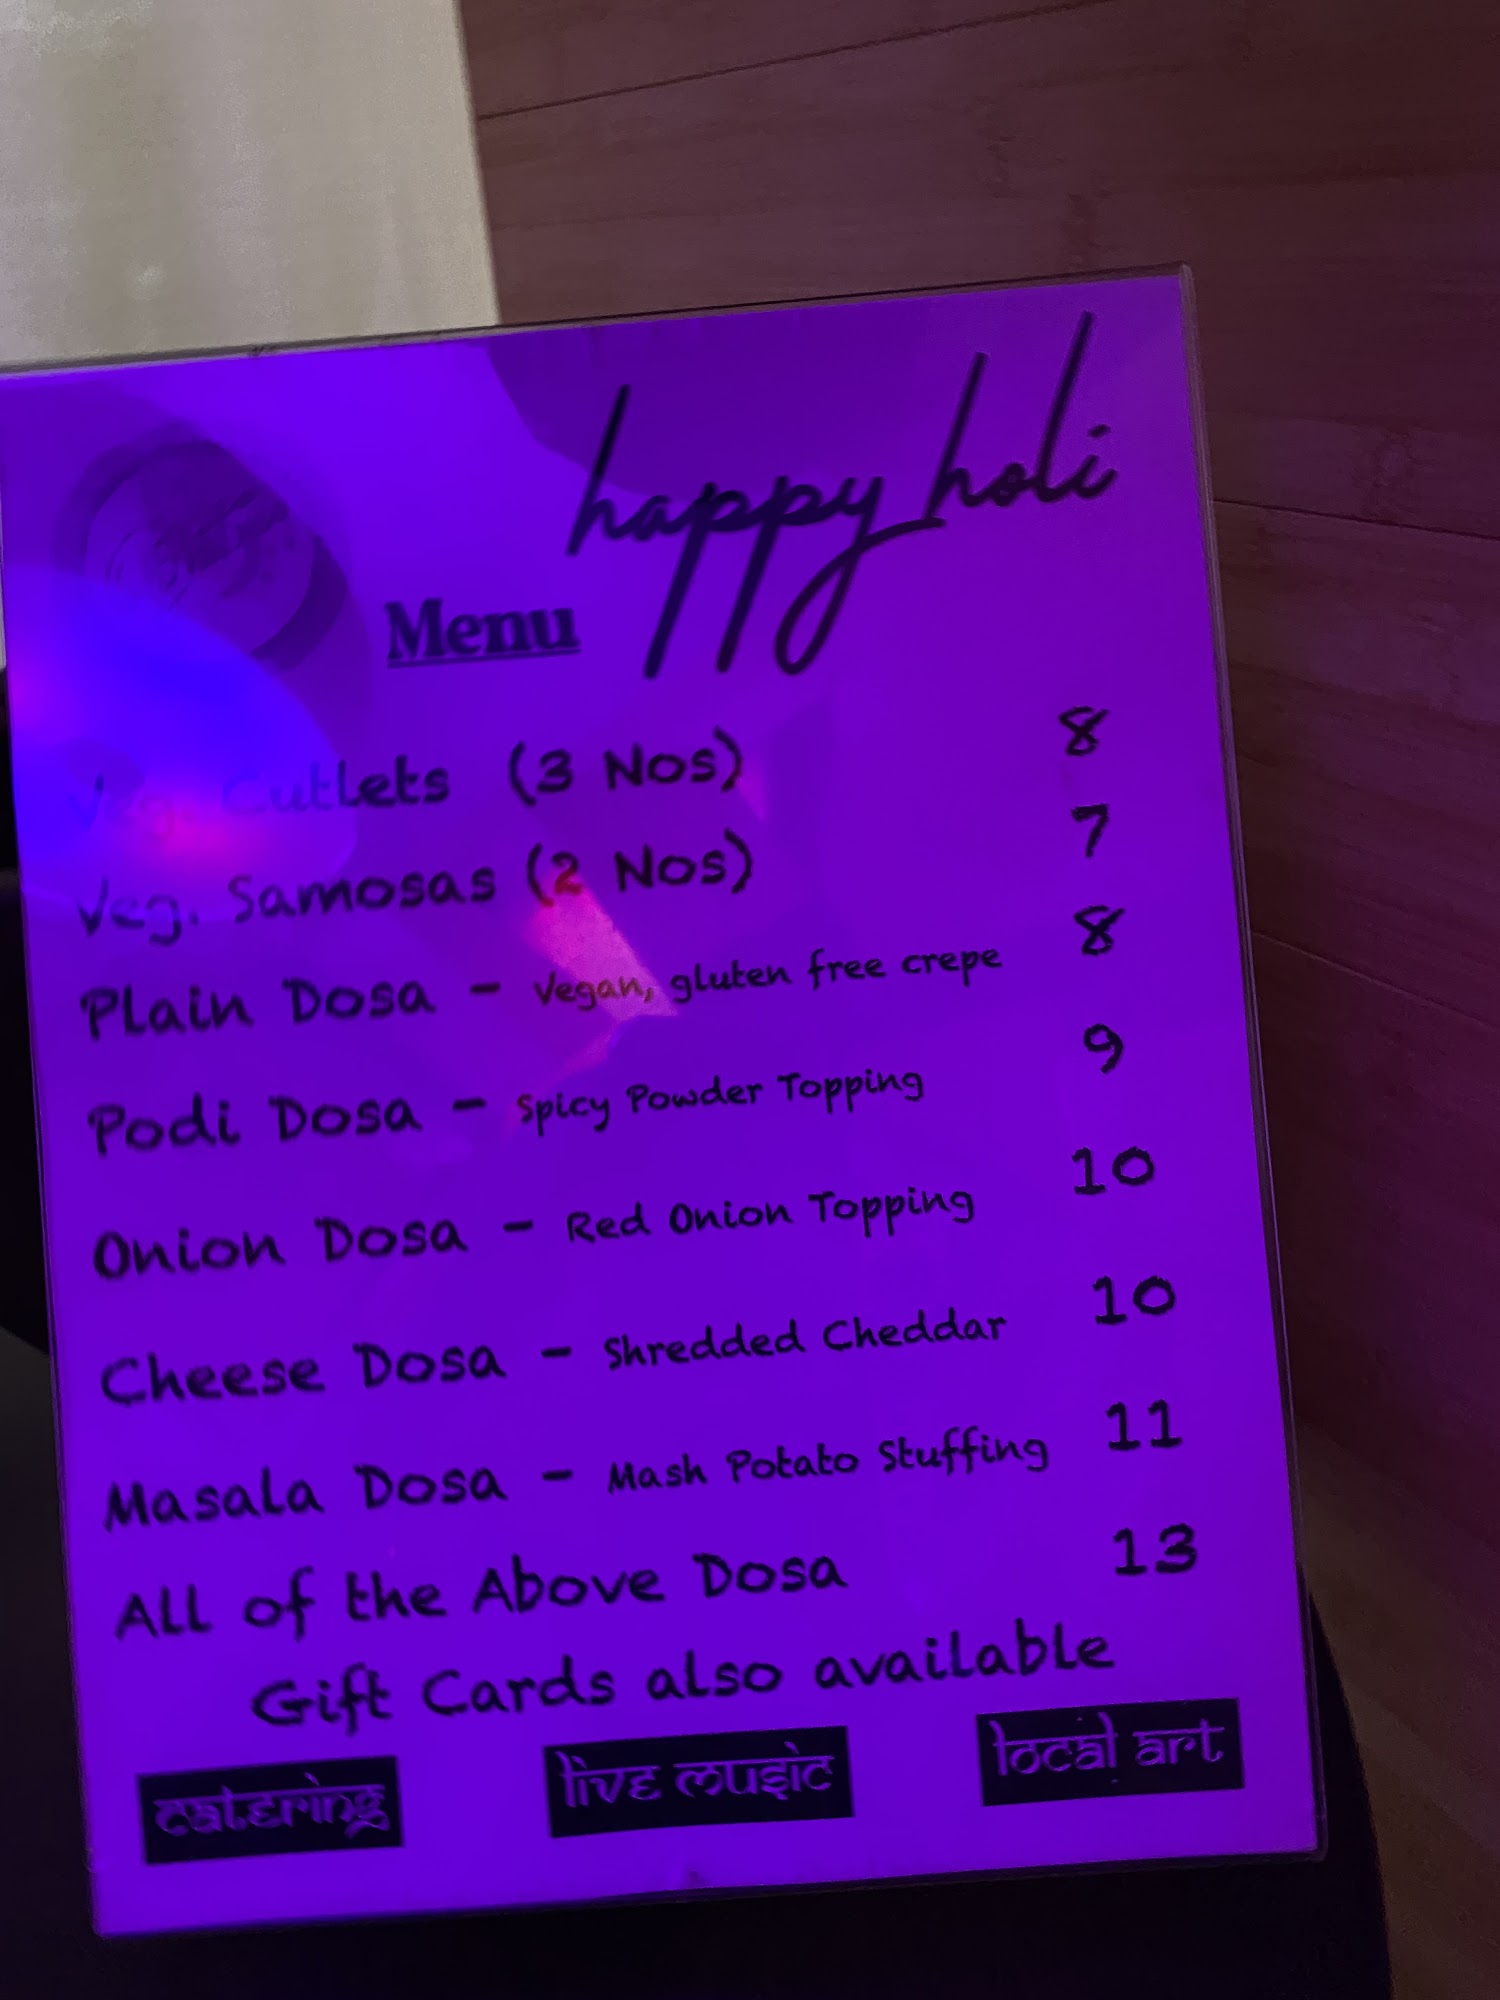 happy holi
Menu
Veg. Cutlets (3 Nos) 8
Veg. Samosas (2 Nos) 7
Plain Dosa - Vegan, gluten free crepe 8
Podi Dosa - Spicy Powder Topping 9
Onion Dosa - Red Onion Topping 10
Cheese Dosa - Shredded Cheddar 10
Masala Dosa - Mash Potato Stuffing 11
All of the Above Dosa 13
Gift Cards also available
catering live music local art